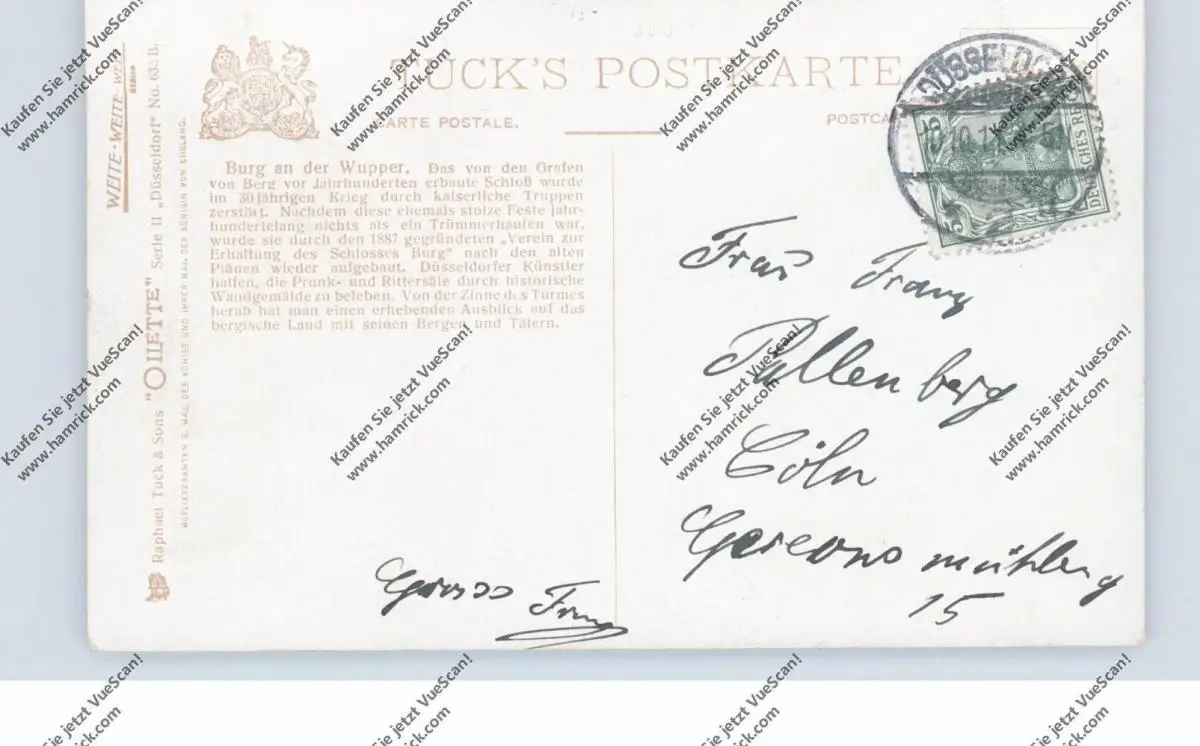 TUCK'S POSTKARTE
CARTE POSTALE.
POSTCA
DÜSSELDO
5
DEUTSCHES REI
5
WEITE · WEITE · W
Raphael Tuck & Sons "OILETTE" Serie II „Düsseldorf" No. 635 B.
HOFLIEFERANTEN S. MAJ. DES KÖNIGS UND IHRER MAJ. DER KÖNIGIN VON ENGLAND.
Burg an der Wupper. Das von den Grafen
von Berg vor Jahrhunderten erbaute Schloß wurde
im 30jährigen Krieg durch kaiserliche Truppen
zerstört. Nachdem diese ehemals stolze Feste jahr-
hundertelang nichts als ein Trümmerhaufen war,
wurde sie durch den 1887 gegründeten „Verein zur
Erhaltung des Schlosses Burg" nach den alten
Plänen wieder aufgebaut. Düsseldorfer Künstler
halfen, die Prunk- und Rittersäle durch historische
Wandgemälde zu beleben. Von der Zinne des Turmes
herab hat man einen erhebenden Ausblick auf das
bergische Land mit seinen Bergen und Tälern.
Frau Franz
Pallenberg
Cöln
Gereonsmühleng
15
Gruss Franz
Kaufen Sie jetzt VueScan!
www.hamrick.com